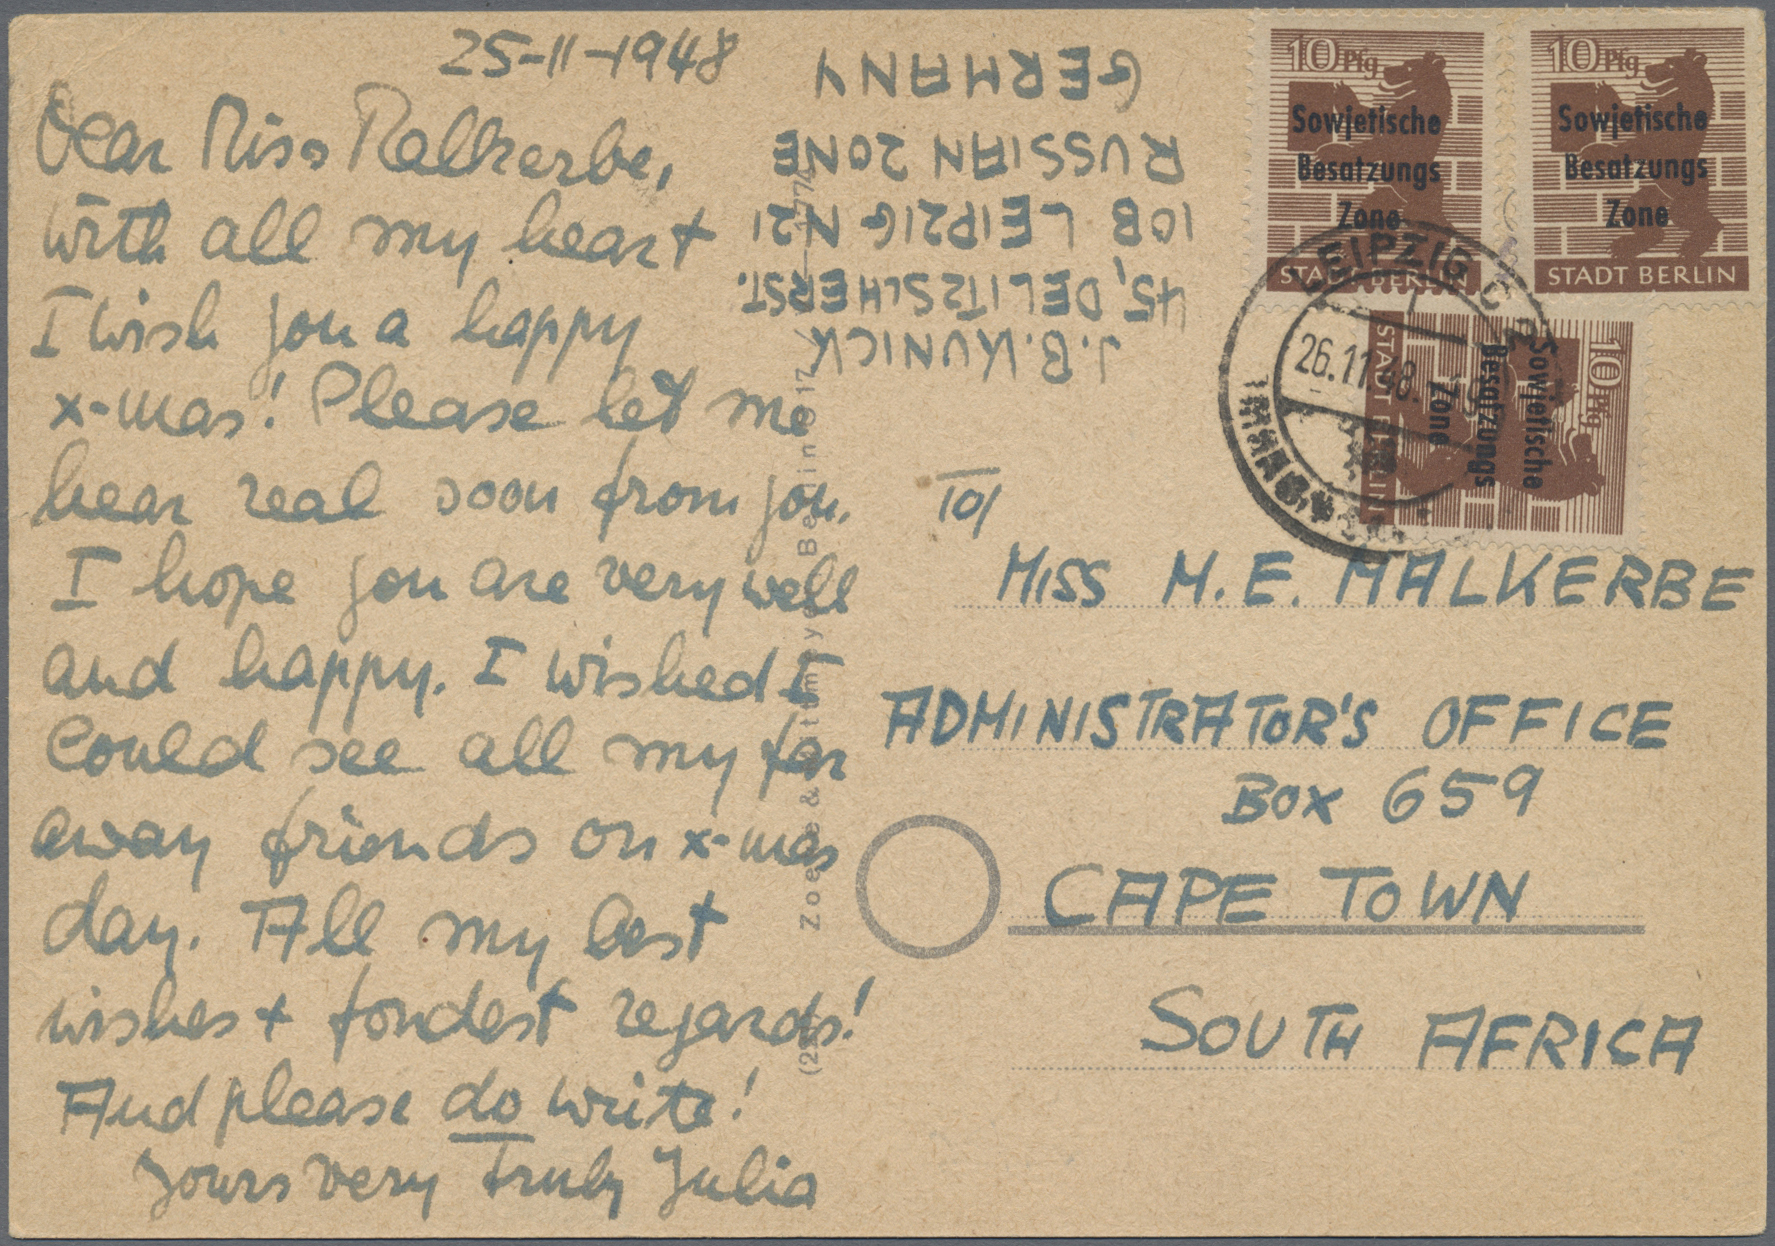 25-11-1948
Dear Miss Malkerbe,
With all my heart
I wish you a happy
x-mas! Please let me
hear real soon from you.
I hope you are very well
and happy. I wished I
Could see all my far
away friends on x-mas
day. All my best
wishes + fondest regards!
And please do write!
Yours very Truly Julia
J.B. KUNICK
45, DELITZSCHERST.
10B LEIPZIG N21
RUSSIAN ZONE
GERMANY
10 Pfg
Sowjetische
Besatzungs
Zone
STADT BERLIN
10 Pfg
Sowjetische
Besatzungs
Zone
STADT BERLIN
10 Pfg
Sowjetische
Besatzungs
Zone
STADT BERLIN
LEIPZIG C
26.11.48.
TO/
MISS M.E. MALKERBE
ADMINISTRATOR'S OFFICE
BOX 659
CAPE TOWN
SOUTH AFRICA